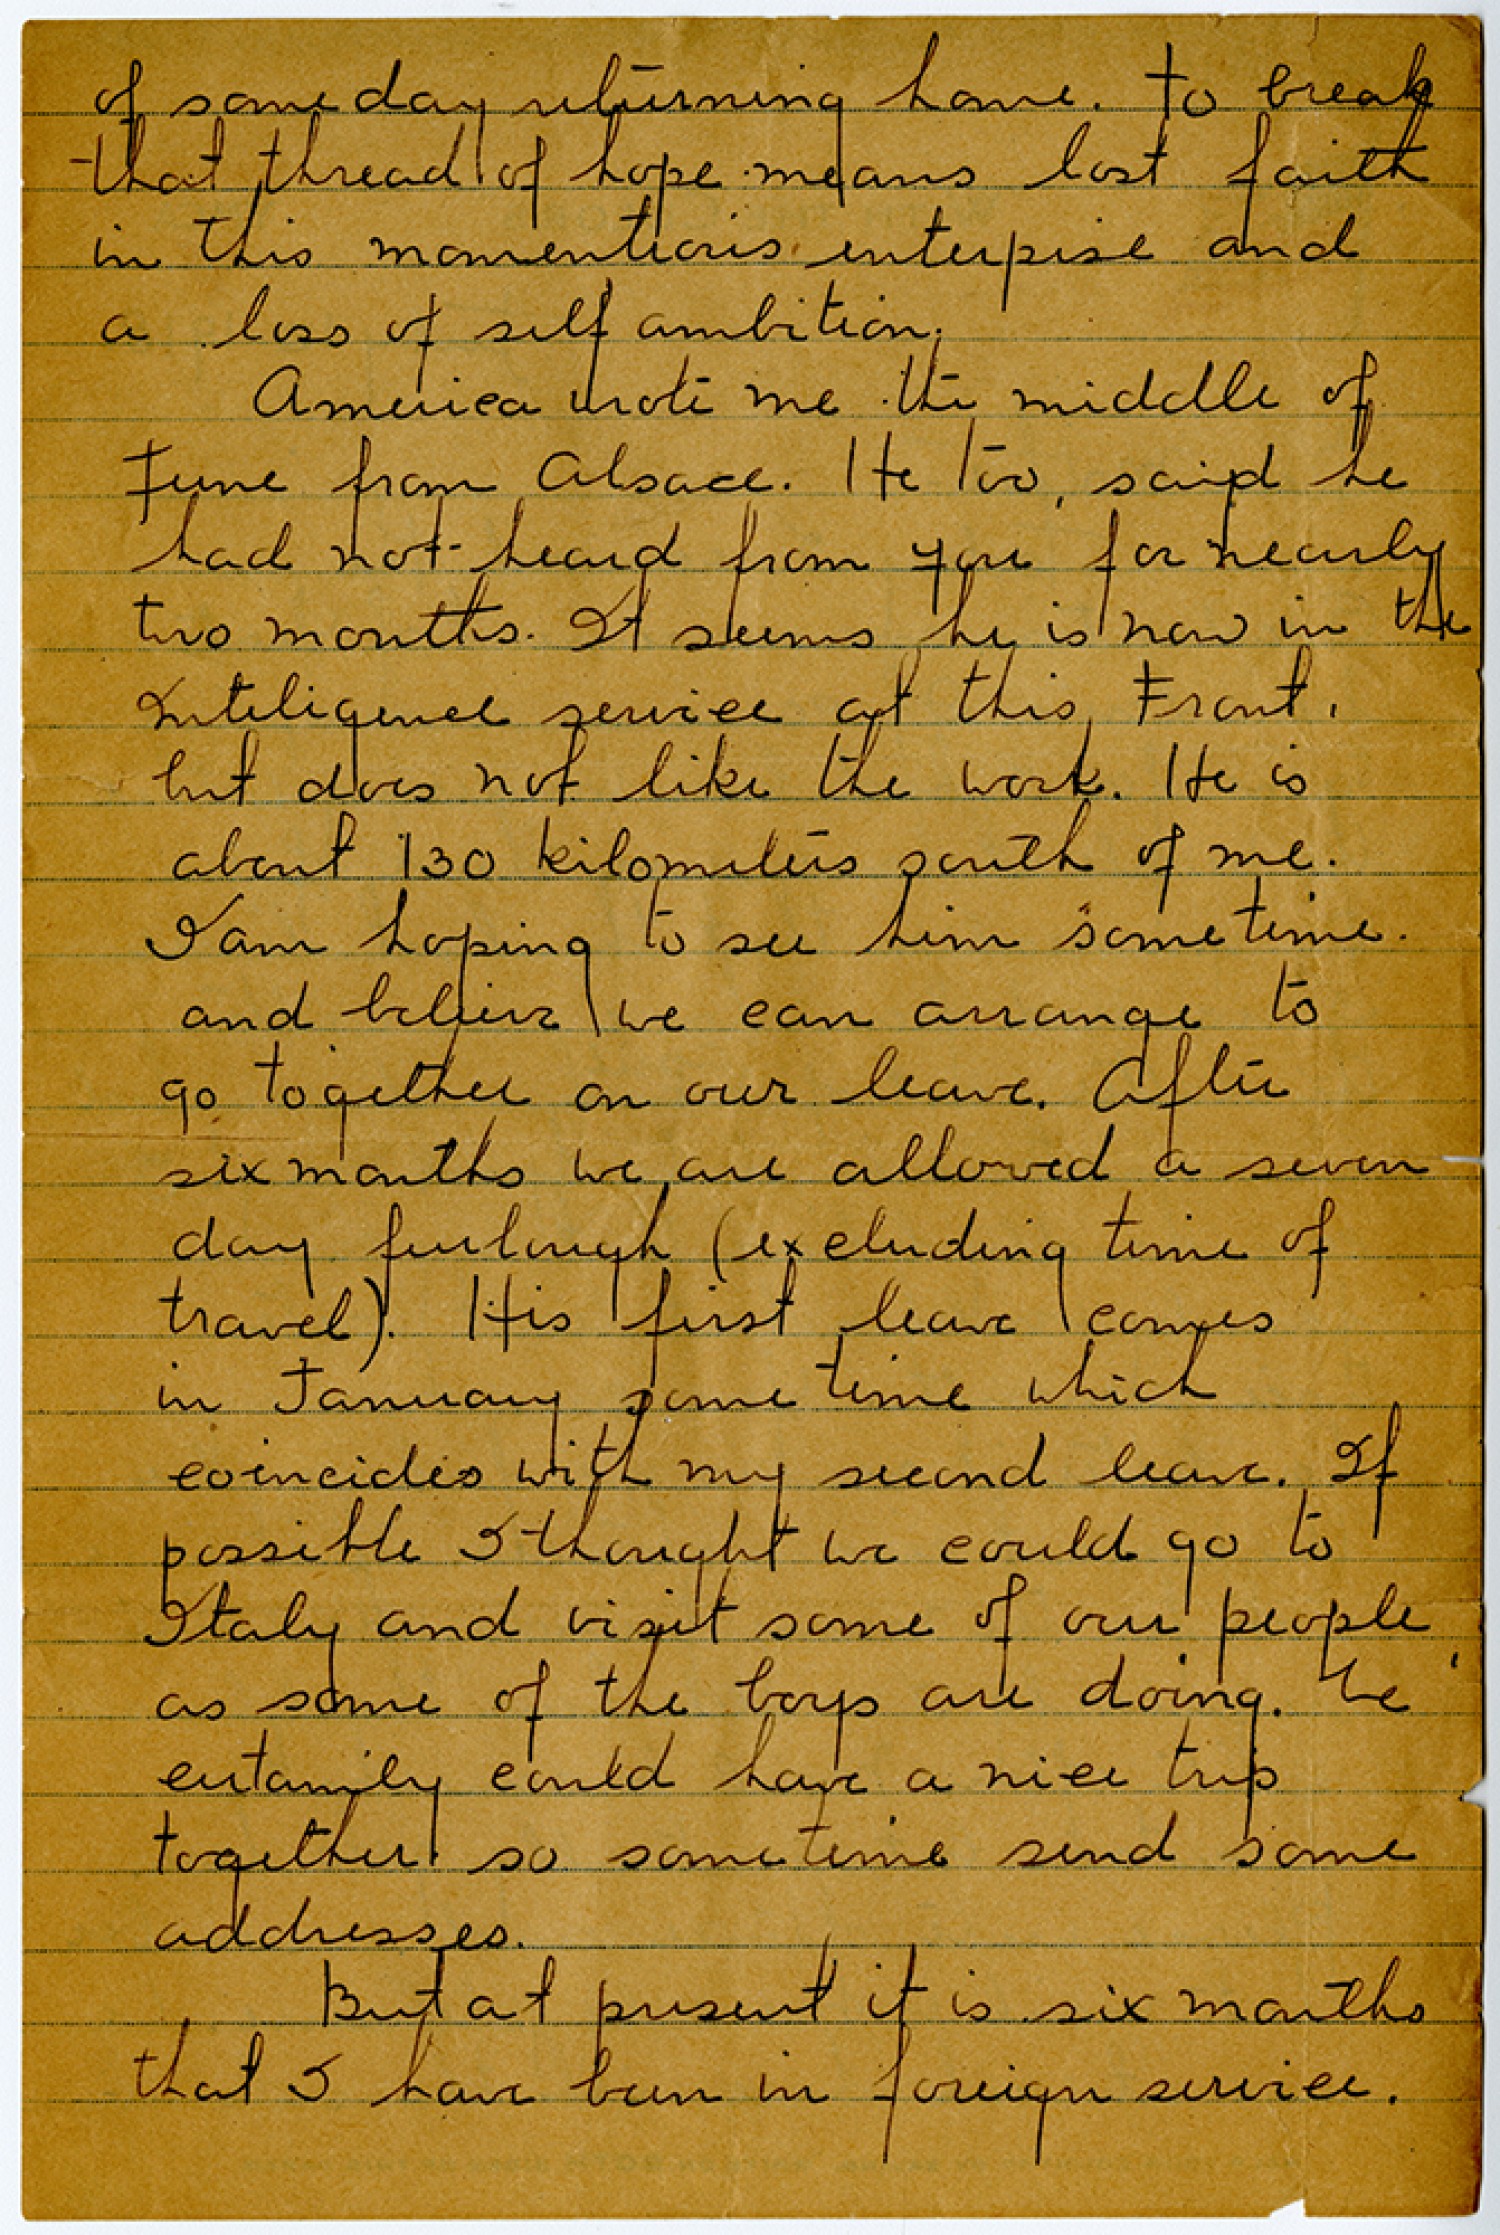 of some day returning home. To break
that thread of hope means lost faith
in this momentious enterpise and
a loss of self ambition.
America wrote me the middle of
June from Alsace. He too, said he
had not heard from you for nearly
two months. It seems he is now in the
Inteligence service at this Front,
but does not like the work. He is
about 130 kilometers south of me.
I am hoping to see him sometime.
and believe we can arrange to
go together on our leave. After
six months we are allowed a seven
day furlough (excluding time of
travel). His first leave comes
in January some time which
coincides with my second leave. If
possible I thought we could go to
Italy and visit some of our people,
as some of the boys are doing. We
certainly could have a nice trip
together so sometime send some
addresses.
But at present it is six months
that I have been in foreign service.